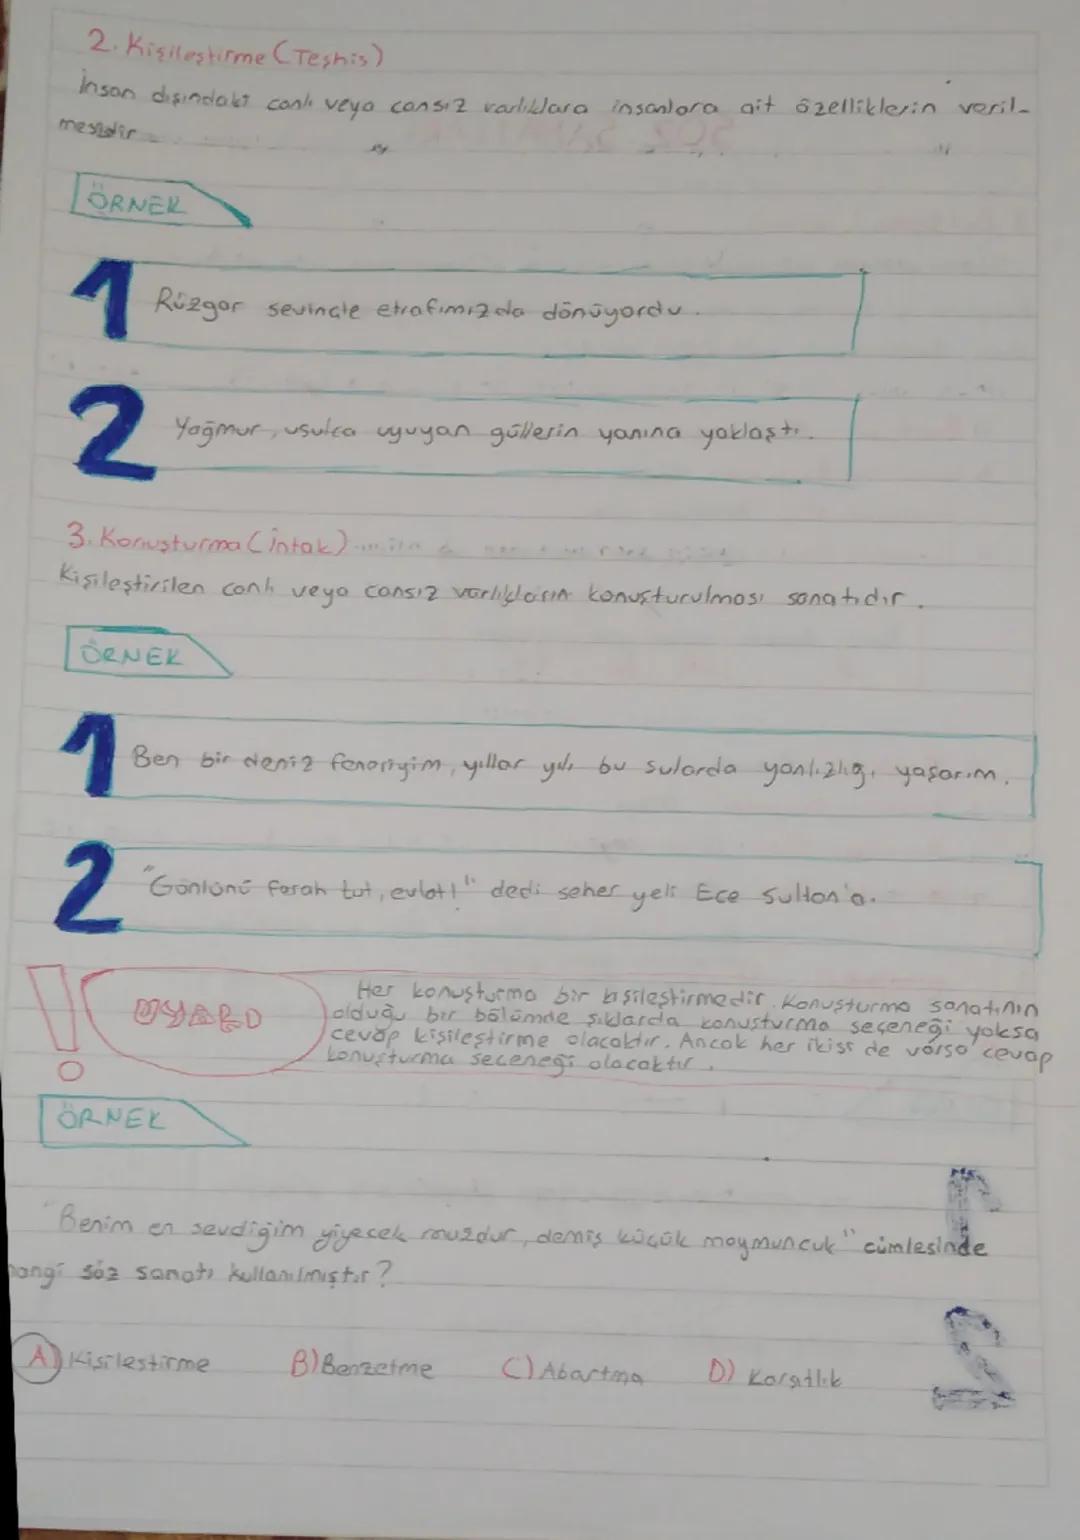 2. Kişileştirme (Teşhis)
İnsan dışındaki canlı veya cansız varlıklara insanlara ait özelliklerin veril-
mesidir
ÖRNEK
1 Rüzgar sevinçle etrafımızda dönüyordu.
2 Yağmur, usulca uyuyan güllerin yanına yaklaştı.
3. Konuşturma (İntak)
Kişileştirilen canlı veya cansız varlıkların konuşturulması sanatıdır.
ÖRNEK
1 Ben bir deniz feneriyim, yıllar yılı bu sularda yanlızlığı yaşarım.
2 "Gönlünü ferah tut, evlat!" dedi seher yeli Ece Sultan'a.
! UYARI
Her konuşturma bir kişileştirmedir. Konuşturma sanatının
olduğu bir bölümde şıklarda konuşturma seçeneği yoksa
cevap kişileştirme olacaktır. Ancak her ikisi de varsa cevap
konuşturma seçeneği olacaktır.
ÖRNEK
"Benim en sevdiğim yiyecek muzdur, demiş küçük maymuncuk" cümlesinde
hangi söz sanatı kullanılmıştır?
A) Kişileştirme B) Benzetme C) Abartma D) Karşıtlık